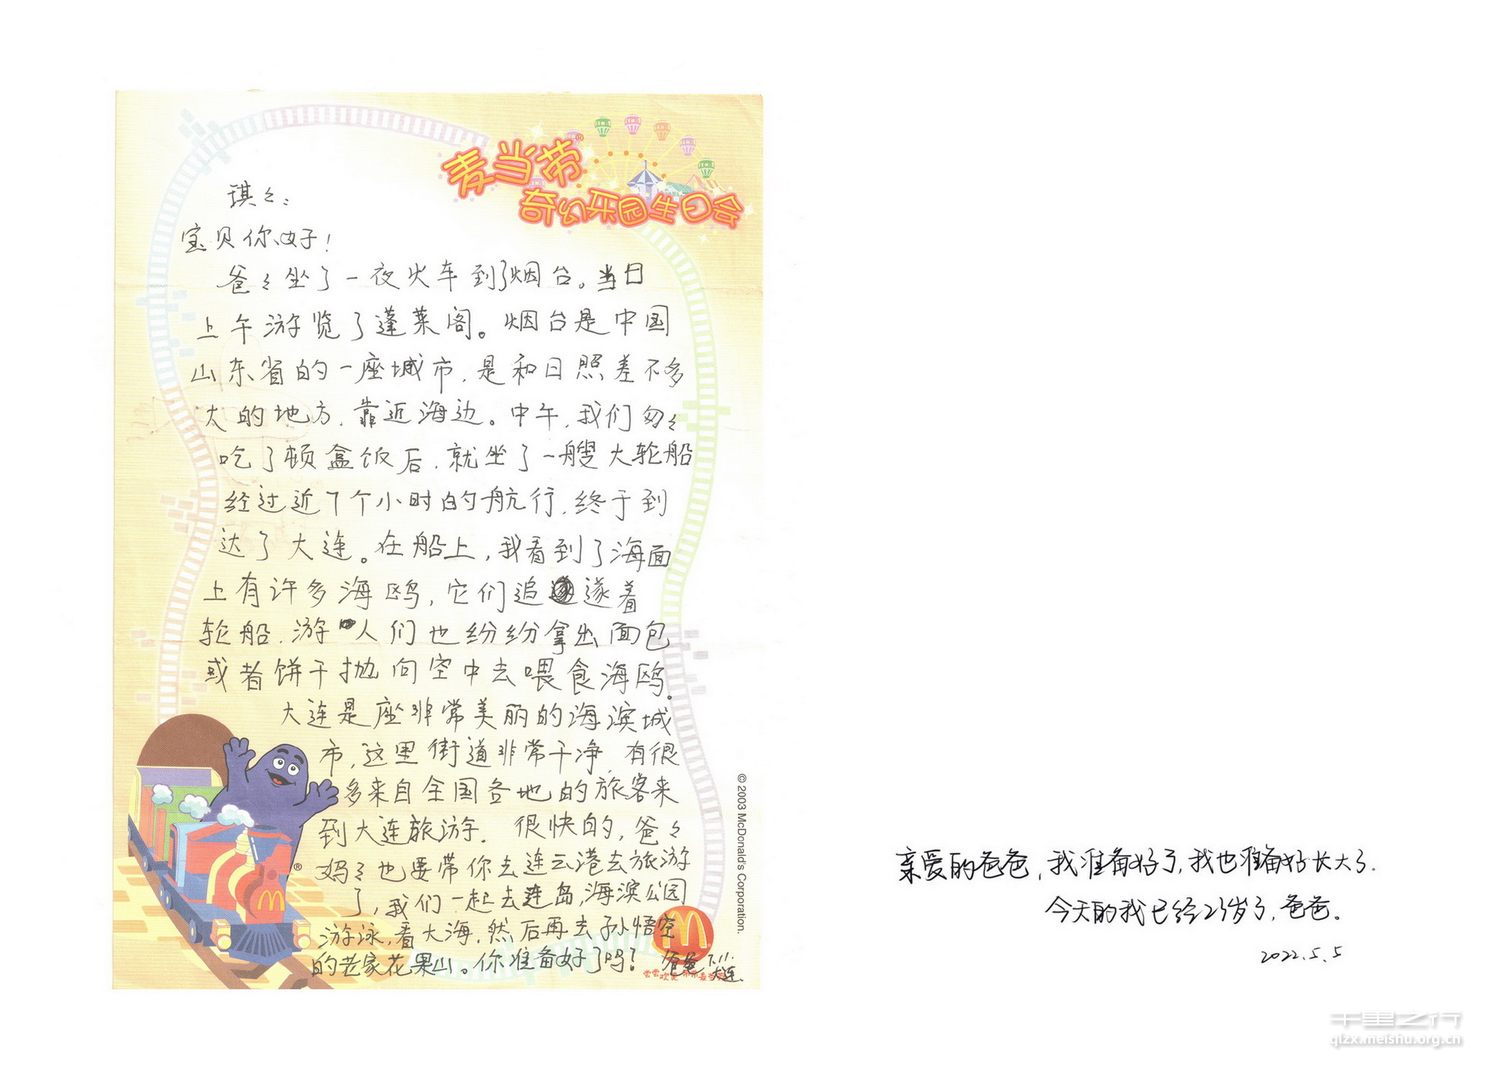 麦当劳®
奇幻乐园生日会
琪々:
宝贝你好!
爸々坐了一夜火车到了烟台。当日
上午游览了蓬莱阁。烟台是中国
山东省的一座城市,是和日照差不多
大的地方,靠近海边。中午,我们匆々
吃了顿盒饭后,就坐了一艘大轮船
经过近7个小时的航行,终于到
达了大连。在船上,我看到了海面
上有许多海鸥,它们追遂着
轮船,游人们也纷纷拿出面包
或者饼干抛向空中去喂食海鸥。
大连是座非常美丽的海滨城
市,这里街道非常干净,有很
多来自全国各地的旅客来
到大连旅游。很快的,爸々
妈々也要带你去连云港去旅游
了,我们一起去连岛,海滨公园
游泳,看大海,然后再去孙悟空
的老家花果山。你准备好了吗?
爸爸 7.11.
大连.
®
© 2003 McDonald's Corporation.
亲爱的爸爸,我准备好了,我也准备好长大了.
今天的我已经23岁了,爸爸。
2022.5.5
千里之行
qlzx.meishu.org.cn